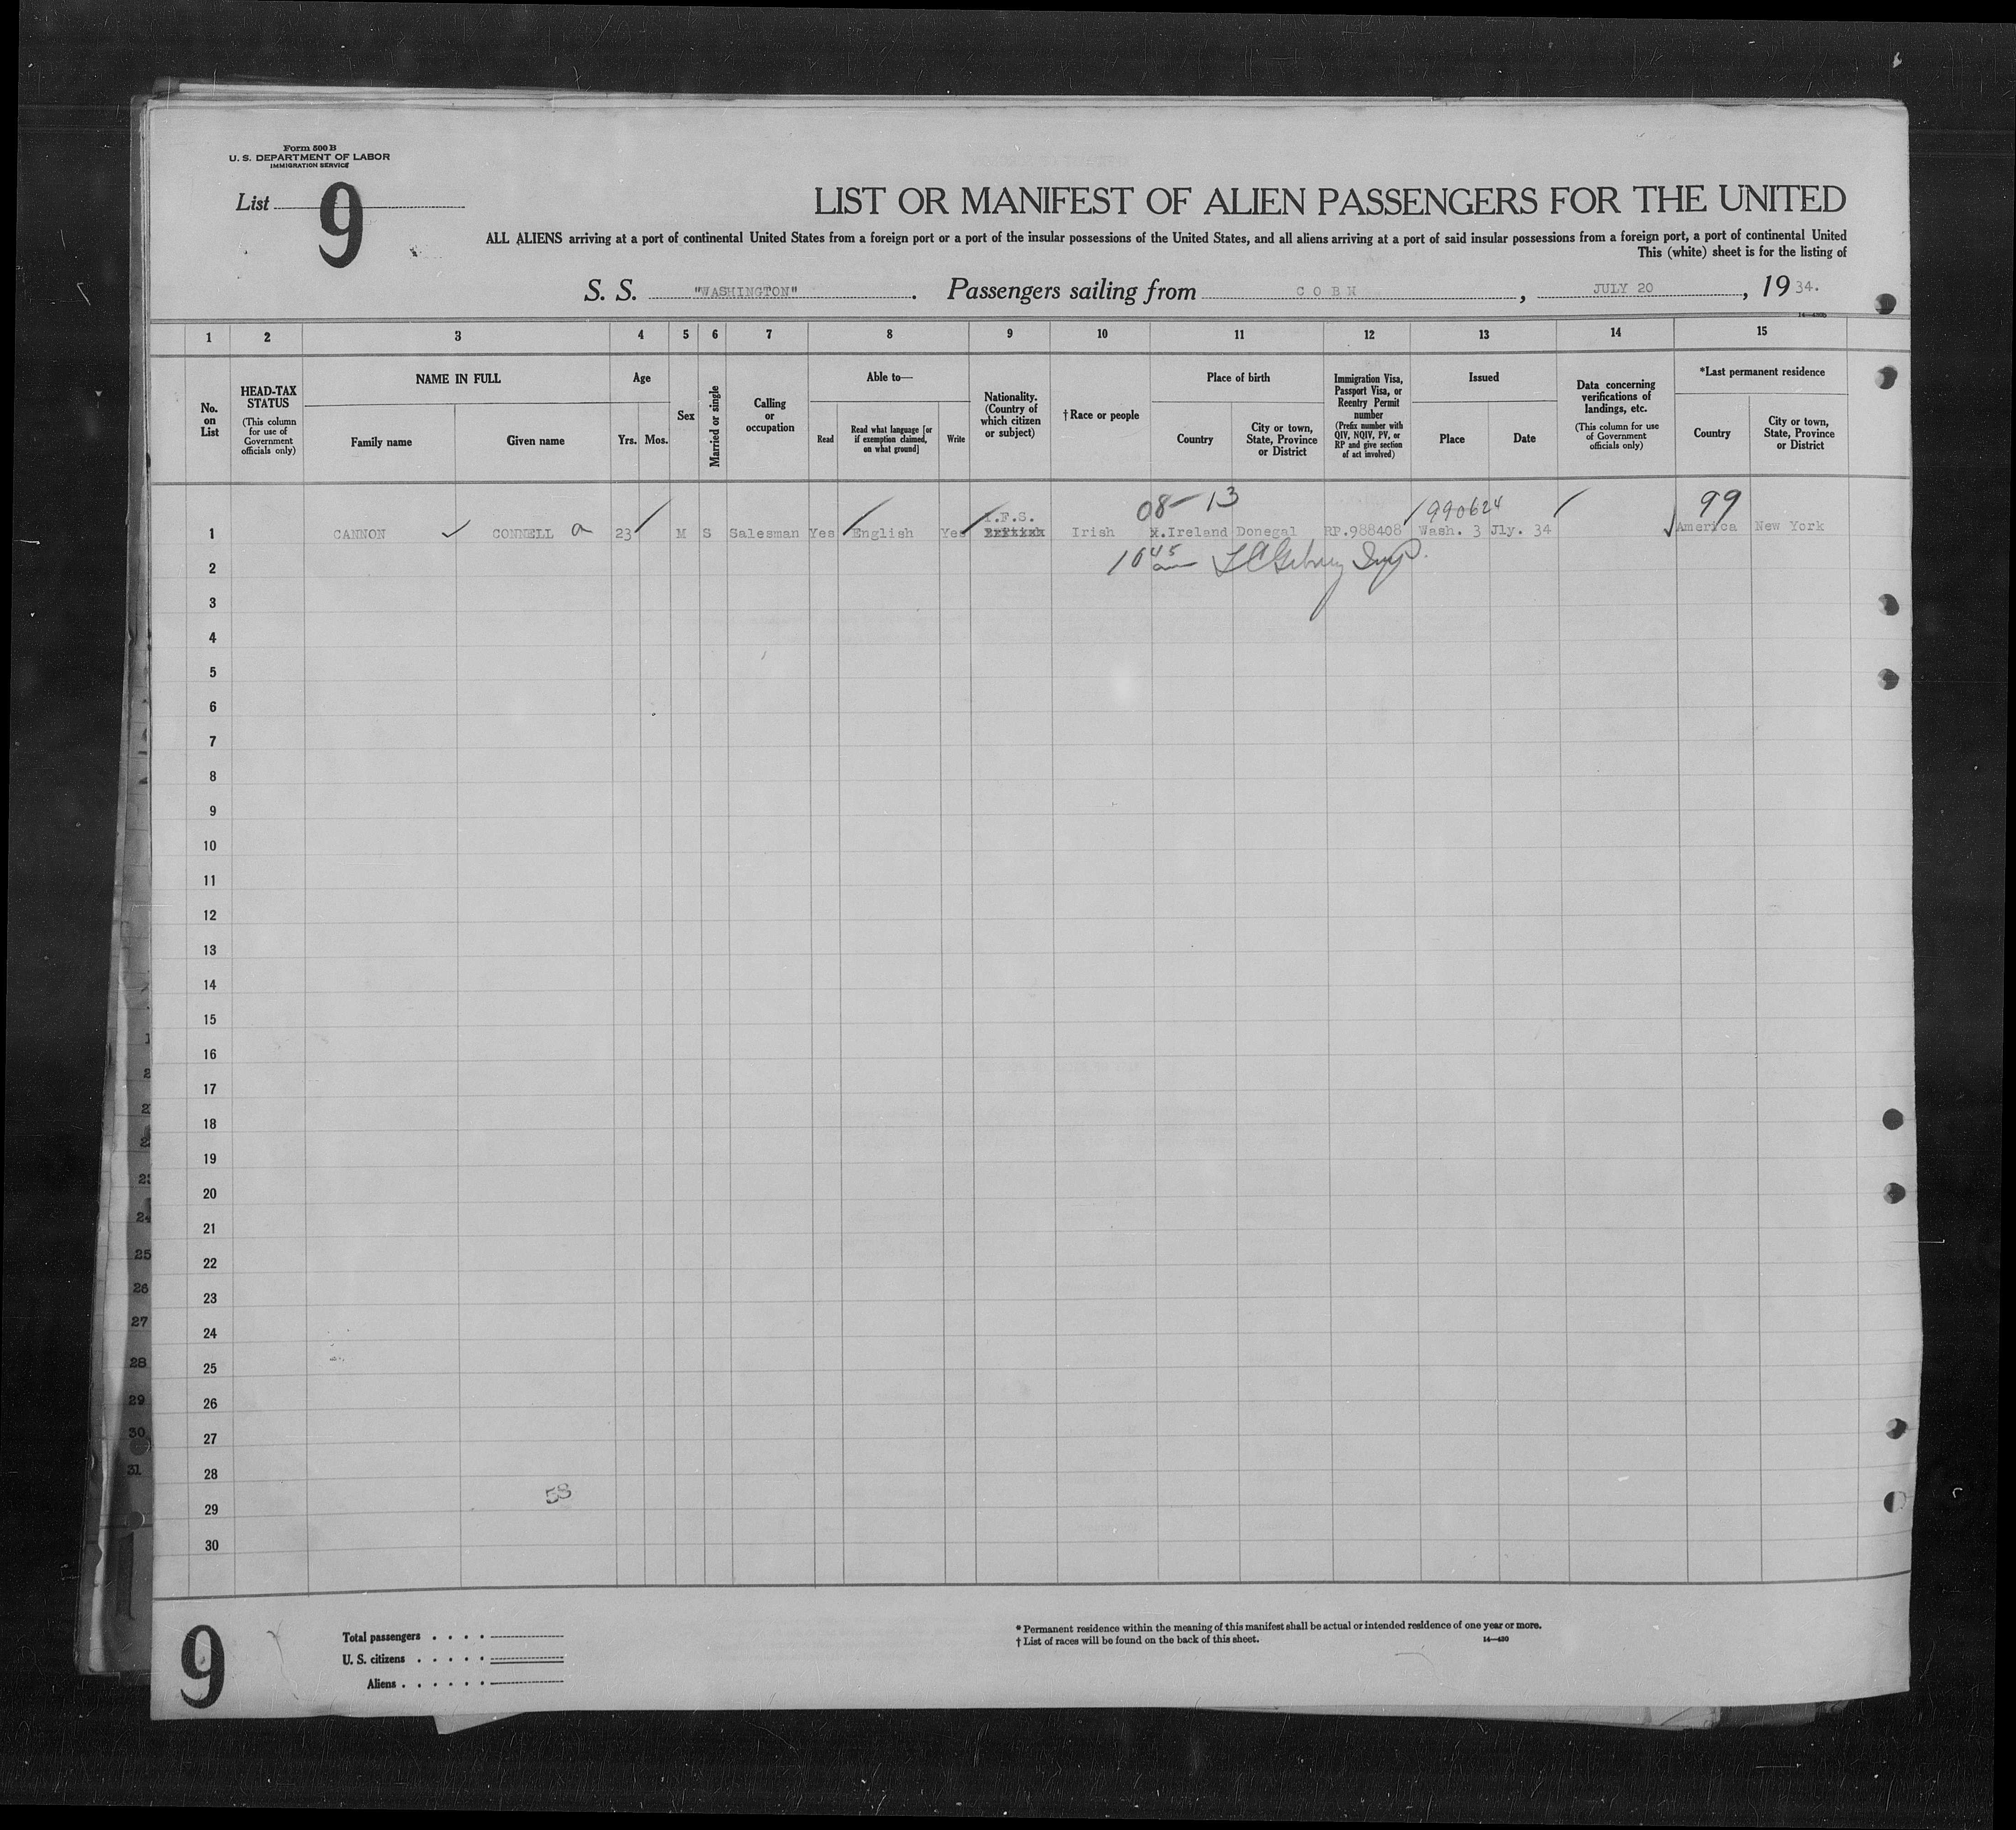 Form 500 B
U. S. DEPARTMENT OF LABOR
IMMIGRATION SERVICE
List 9
LIST OR MANIFEST OF ALIEN PASSENGERS FOR THE UNITED
ALL ALIENS arriving at a port of continental United States from a foreign port or a port of the insular possessions of the United States, and all aliens arriving at a port of said insular possessions from a foreign port, a port of continental United
This (white) sheet is for the listing of
S. S. "WASHINGTON". Passengers sailing from COBH, JULY 20, 1934.
1 2 3 4 5 6 7 8 9 10 11 12 13 14 15
No. on List
HEAD-TAX STATUS
(This column for use of Government officials only)
NAME IN FULL
Family name Given name
Age
Yrs. Mos.
Sex
Married or single
Calling or occupation
Able to—
Read
Read what language [or if exemption claimed, on what ground]
Write
Nationality. (Country of which citizen or subject)
†Race or people
Place of birth
Country
City or town, State, Province or District
Immigration Visa, Passport Visa, or Reentry Permit number
(Prefix number with QIV, NQIV, PV, or RP and give section of act involved)
Issued
Place Date
Data concerning verifications of landings, etc.
(This column for use of Government officials only)
*Last permanent residence
Country
City or town, State, Province or District
08-13 990624 99
I.F.S.
1 CANNON CONNELL a 23 M S Salesman Yes English Yes Irish Ireland Donegal RP.988408 Wash. 3 Jly. 34 America New York
10 45 am Insp.
2
3
4
5
6
7
8
9
10
11
12
13
14
15
16
17
18
19
20
21
22
23
24
25
26
27
28
58
29
30
9
Total passengers
U. S. citizens
Aliens
* Permanent residence within the meaning of this manifest shall be actual or intended residence of one year or more.
† List of races will be found on the back of this sheet.
14—430
24
25
26
27
28
29
30
31